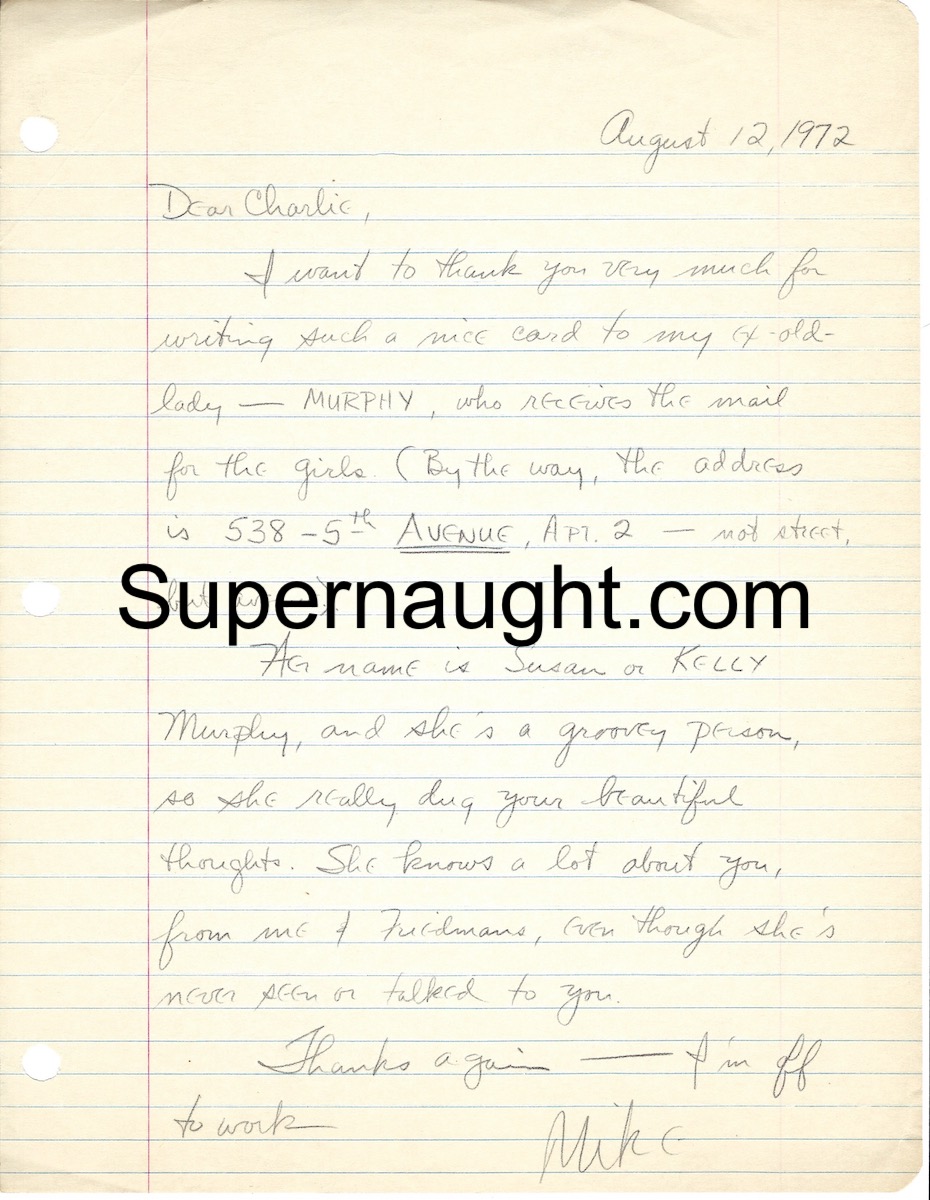 August 12, 1972
Dear Charlie,
I want to thank you very much for
writing such a nice card to my ex-old-
lady — MURPHY, who receives the mail
for the girls. (By the way, the address
is 538 - 5th AVENUE, APT. 2 — not street,
but
Supernaught.com
Her name is Susan or KELLY
Murphy, and she's a groovey person,
so she really dug your beautiful
thoughts. She knows a lot about you,
from me & Friedmans, even though she's
never seen or talked to you.
Thanks again — I'm off
to work
Mike